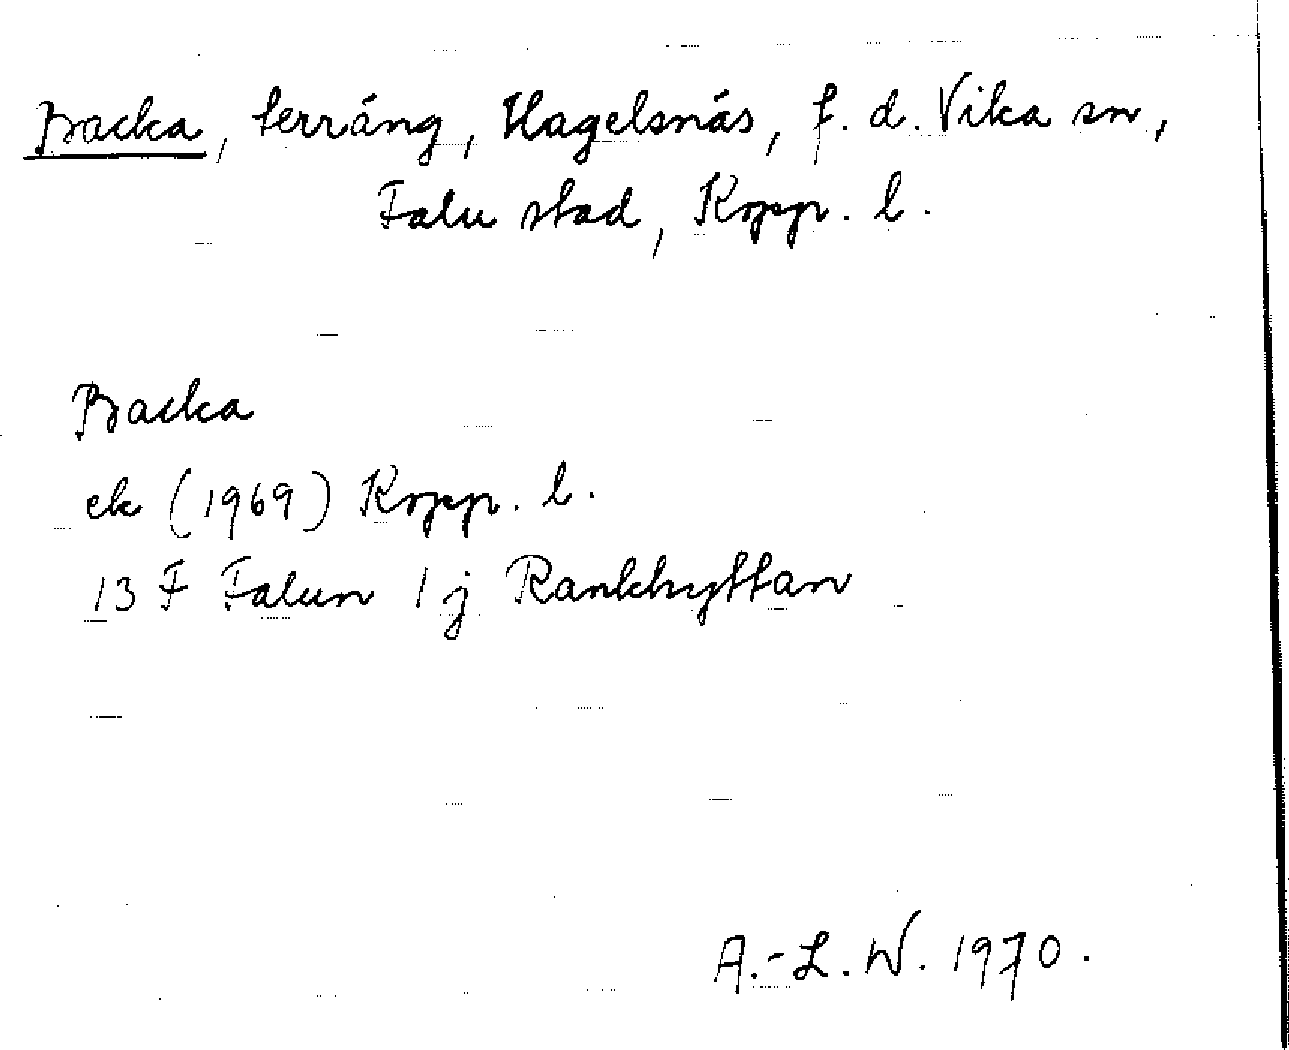 Backa, terräng, Hagelsnäs, f. d. Vika sn,
Falu stad, Kopp. l.
Backa
ek (1969) Kopp. l.
13 F Falun 1 j Rankhyttan
A.-L. W. 1970.